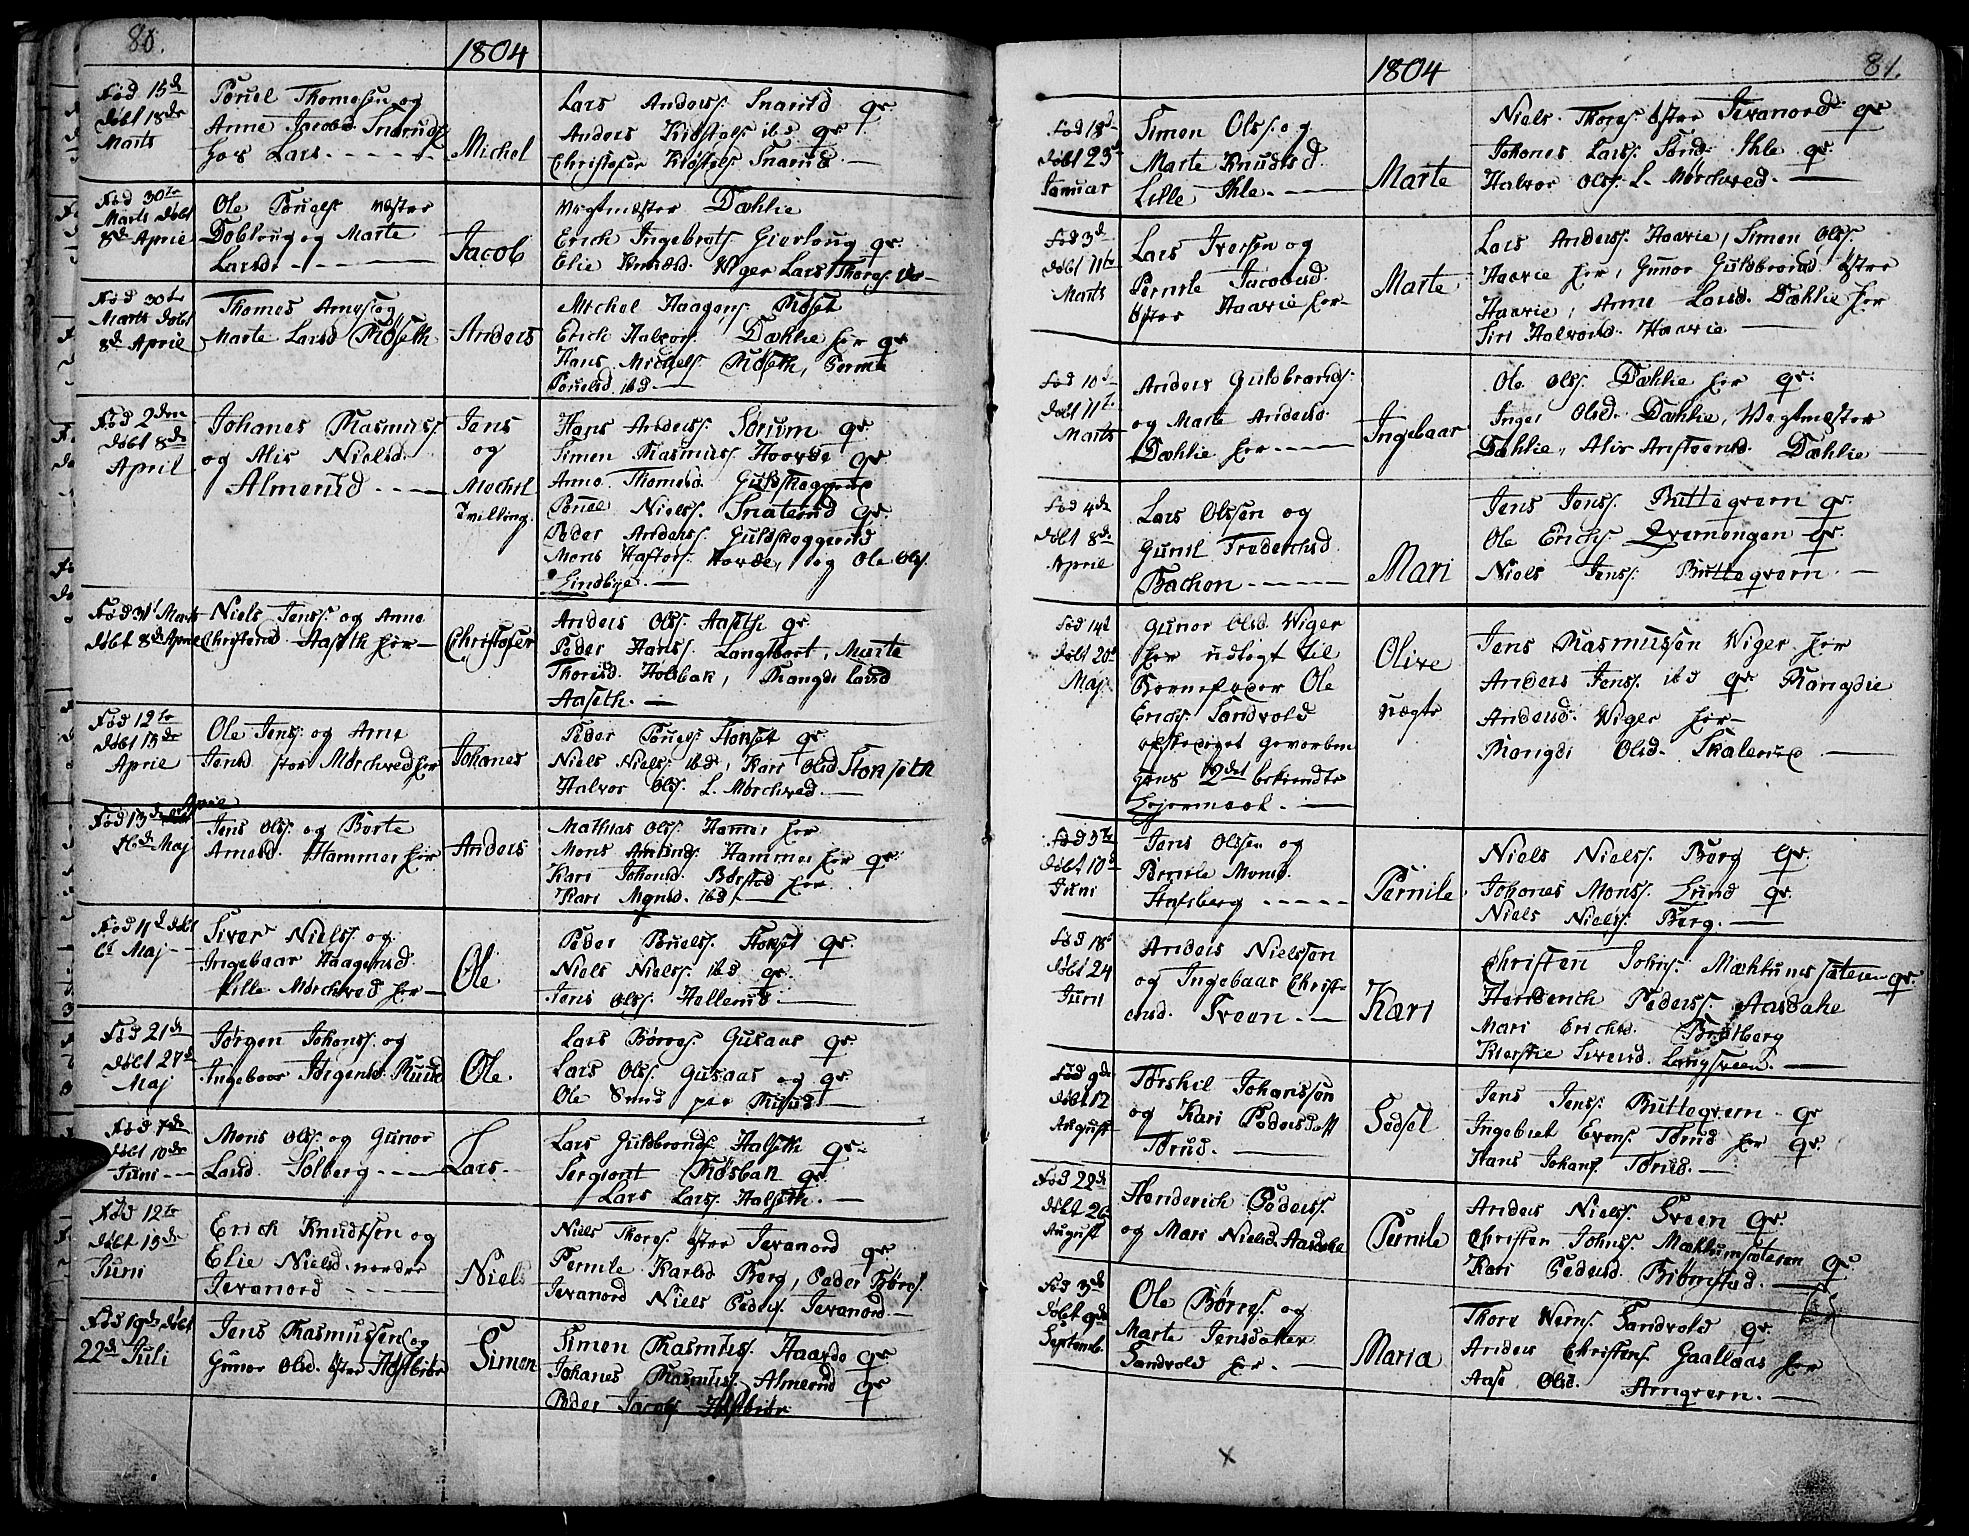 80.
1804
Fød 15de
døbt 18de
Marts
Pouel Thomesen og
Anne Jacobsd. Snarud
hos Lars
Michel
Lars Anderss. Snarud qr
Anders Kiøstels ibd qr
Christofer Kiøstels Snarud
Fød 30te
Marts døbt
8de Aprile
Ole Pouelss Wester
Dobloug og Marte
Larsdr
Jacob
Wegtmester Dæhlie
Erich Ingebrets. Gierloug qr.
Elie Knudsd. Wiger Lars Thoress.
Fød 30te
Marts døbt
8de Aprile
Thomes Arnes og
Marte Larsd Røseth
Anders
Michel Haagens. Røset
Erich Halvors. Dæhlie her qr
Hans Michels. Røseth, Pernile
Pouelsd. ibd.
Fød 2den
døbt 8de
April
Johanes Rasmuss.
og Alis Nielsd.
Almerud
Jens
og
Mechel
Tvilling
Hans Anderss. Sørum qr
Simen Rasmuss Hovde qr
Anne Thomesd. Guldskaggerud
Pouel Nielss. Snaterud qr.
Peder Anderss. Guldskaggerud
Mons Haftors. Hovde, og Ole Ols.
Lindbye.
Fød 31t Marts
døbt 8de Aprile
Niels Jenss. og Anne
Christensd Aaseth her
Christofer
Anders Olss. Aaseth qr
Peder Hanss. Langkort, Marte
Thoresd. Holsbak, Rangdi Larsd
Aaseth.
Fød 12te
døbt 15de
Aprile
Ole Jenss. og Anne
Jensd stor Mørchved her
Johanes
Peder Pouelss Stonset qr
Niels Nielss. ibd, Kari Olsd Stonseth
Halvor Olss. L. Mørchved.
Fød 13de Aprile
6de Maj
Jens Olss. og Borte
Arnesd. Hammer her
Anders
Mathias Olss. Hamer her
Mons Amunds. Hammer her qr.
Kari Johansd. Børstad her
Kari Monsd. ibd.
Fød 11te døbt
6t Maj
Siver Nielss. og
Ingebaar Haagensd.
Lille Mørchved her
Ole
Peder Pouelss. Stonset qr.
Niels Nielss. ibd qr.
Jens Olss. Hollerud.
Fød 21de
døbt 27de
Maj
Jørgen Johanss. og
Ingebaar Jørgensd. Ruud
Ole.
Lars Børres. Gusaas qr
Lars Olss. Gusaas og qr
Ole Smed paa Ruud.
Fød 7de
døbt 10de
Juni
Mons Olss. og Gunor
Larsd. Solberg
Lars
Lars Guldbrands. Halseth qr.
Sergient Røsban qr
Lars Larss. Halseth.
Fød 12te
døbt 15de
Juni
Erich Knudtsen og
Elie Nielsd. nordre
Jevanord
Niels
Niels Thoress. østre Jevanord qr
Pernile Karlsd Berg, Peder Børres.
Jevanord Niels Peders. Jevanord.
Fød 19de døbt
22de Juli
Jens Rasmussen og
Gunor Olsd. østre Høstbiør
Simen
Simen Rasmuss. Haarde qr
Johanes Rasmuss. Almerud qr
Peder Jacobs Høstbiør
1804
81.
Fød 18d.
døbt 23d
Januar
Simen Olss. og
Marte Knudsd.
Lille Ihle.
Marte
Niels Thoress. østre Jevanord qr
Johanes Larss. Sønd. Ihle qr
Halvor Olss. L. Mørchved.
Fød 3de
døbt 11te
Marts
Lars Iversen og
Pernile Jacobsd
østre Haavie her
Marte
Lars Anderss. Haavie, Simen Olss.
Haavie her, Gunor Guldbrandsd. østre
Haavie, Anne Larsd. Dæhlie her
Siri Halvorsd. Haavie
Fød 10de
døbt 11te
Marts
Anders Guldbrands.
og Marte Andersd.
Dæhlie her
Ingebaar
Ole Olss. Dæhlie her qr.
Inger Olsd. Dæhlie, Wegtmester
Dæhlie, Alis Aristvensd. Dæhlie
Fød 4de
døbt 8de
Aprile
Lars Olssen og
Gunil Frederichsd.
Bachen
Mari
Jens Jenss. Butteqvern qr.
Ole Erichs. Qvernengen qr.
Niels Jenss. Butteqvern.
Fød 14d
døbt 20d
Maj
Gunor Olsd. Wiger
her udlagt til
Barnefader Ole
Erichs. Sandvold
Gans 2det bekiendte
Lejermaal.
Olive
uægte
Jens Rasmussen Wiger her
Anders Jenss. ibd qr Rangdie
Andersd. Wiger her
Rangdi Olsd. Skalerud
Fød 5te
døbt 10d
Juni
Jens Olssen og
Pernile Monsd.
Stafsberg
Pernile.
Niels Nielss. Berg qr.
Johanes Monss. Lund qr
Niels Nielss. Berg.
Fød 18d
døbt 24
Juni
Anders Nielssen
og Ingebaar Christ-
ensd. Sveen.
Kari
Christen Johns. Mæhlumssæteren qr.
Henderich Pederss. Aasdahl
Mari Erichsd. Bratberg
Kierstie Svensd. Langsveen.
Fød 9de
døbt 12
August
Torskil Johanssøn
og Kari Pedersdatt
Torud.
Sedsel
Jens Jenss. Butteqvern qr
Ingebret Evens. Torud her qr
Hans Johans. Torud.
Fød 22de
døbt 26
August
Henderich Pederss.
og Mari Nielsd. Aasdahl
Pernile
Anders Nielss. Sveen qr.
Christen Johns. Mæhlumsæteren qr
Kari Pedersd. Biørnstad.
Fød 3de
døbt 9de
Septemb.
Ole Børres. og
Marte Jensdatter
Sandvold her.
Maria
Thore Werns. Sandvold qr.
Anders Christens. Gaallaas her
Aase Olsd. Amqvern.